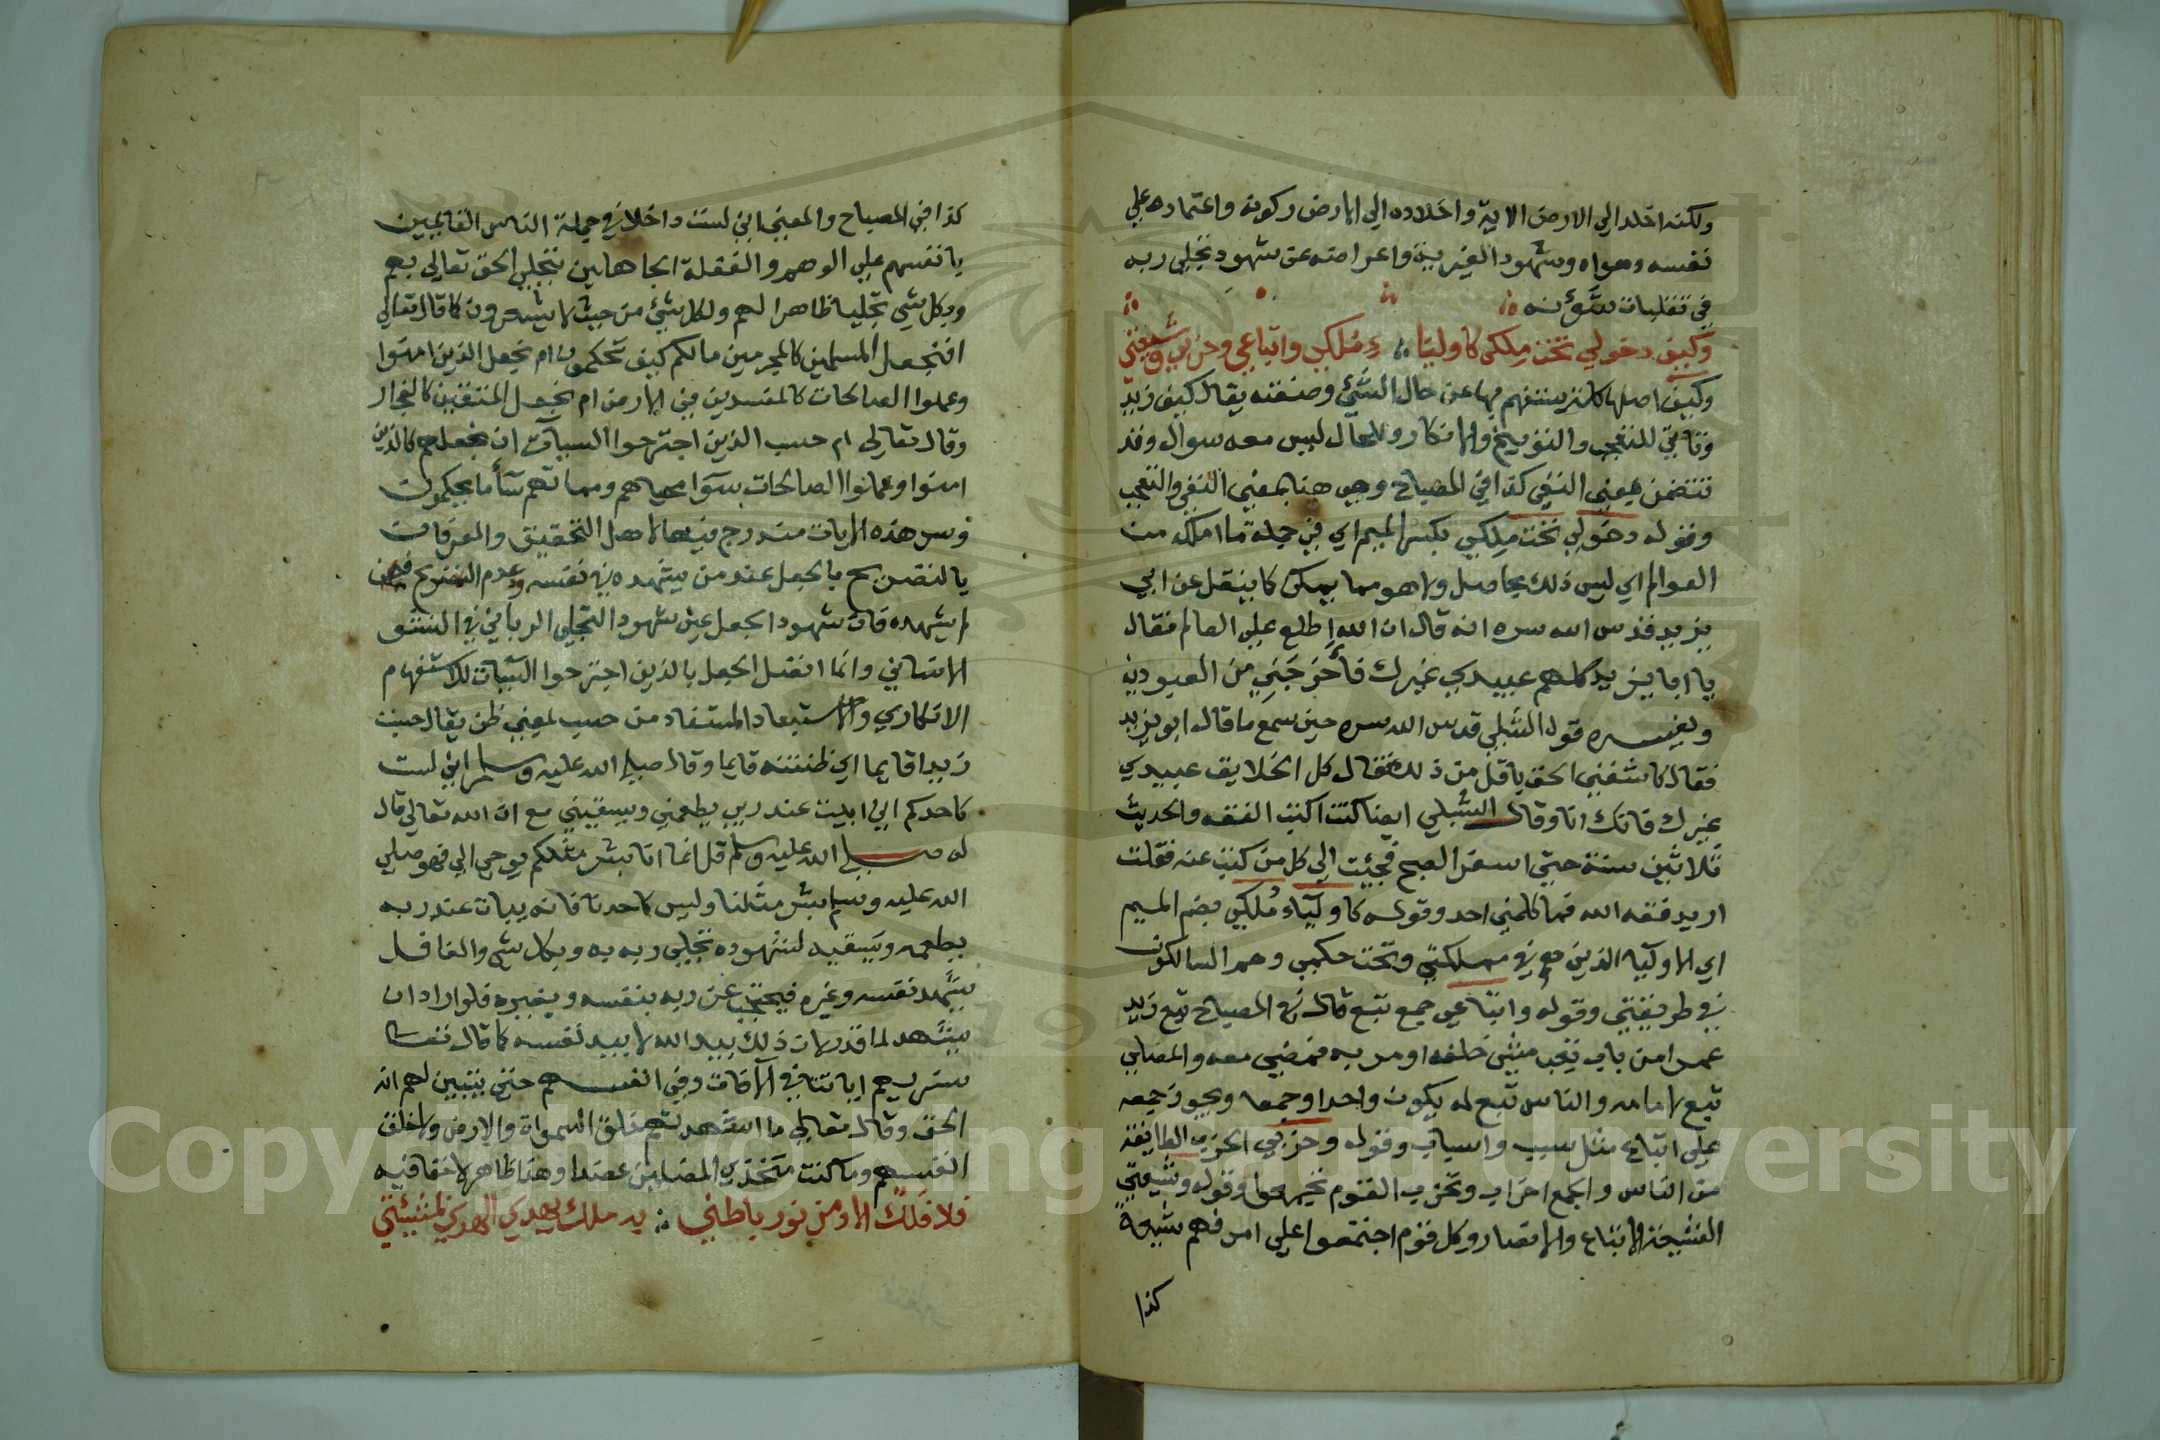 ولكنه اخلد الي الارض الاية واخلاده الي الارض ركونه واعتماده علي
نفسه وهواه وشهود الغيرية واعراضه عن شهود تجلي ربه
في تقلبات شؤنه
وكيف دخولي تحت ملكي كاوليا ء مُلكي واتباعي وحزبي وشيعتي
وكيف اصلها كلمة يستفهم بها عن حال الشئ وصفته يقال كيف زيد
وتاتي للتعجب والتوبيخ والانكار وللحال ليس معه سوال وقد
تتضمن معني النفي كذا في المصباح وهي هنا بمعني النفي والتعجب
وقوله دخولي تحت مِلكي بكسر الميم اي في جملة ما املكه من
العوالم اي ليس ذلك بحاصل ولا هو مما يمكن كما ينقل عن ابي
يزيد قدس الله سره انه قال ان الله اطلع علي العالم فقال
يا ابا يزيد كلهم عبيدي غيرك فأخرَجَني من العبودية
ويفسره قول الشبلي قدس الله سره حين سمع ما قال ابو يزيد
فقال كاشفني الحق باقل من ذلك فقال كل الخلايق عبيدي
غيرك فانك انا وقال الشبلي ايضا كنت اكتب الفقه والحديث
ثلاثين سنة حتي اسفر الصبح فجئت الي كل من كتبت عنه فقلت
اريد فقه الله فما كلمني احد وقوله كاولياء مُلكي بضم الميم
اي الاوليا الذين هم في مملكتي وتحت حكمي وهم السالكون
في طريقتي وقوله واتباعي جمع تبع قال في المصباح تبع زيد
عمرا من باب تعب مشي خلفه او مر به فمضي معه والمصلي
تبع لامامه والناس تبع له يكون واحدا وجمعا ويجوز جمعه
علي اتباع مثل سبب واسباب وقوله وحزبي الحزب الطايفة
من الناس والجمع احزاب وتحزب القوم تجمعوا وقوله وشيعتي
الشيعة الاتباع والانصار وكل قوم اجتمعوا علي امر فهم شيعة
كذا
كذا في المصباح والمعني اني لست داخلا في جملة الناس القايمين
بانفسهم علي الوهم والغفلة الجاهلين بتجلي الحق تعالي بهم
وبكل شي تجليا ظاهرا لهم ولكل شئ من حيث لا يشعرون كما قال تعالي
افنجعل المسلمين كالمجرمين مالكم كيف تحكمون ام نجعل الذين امنوا
وعملوا الصالحات كالمفسدين في الارض ام نجعل المتقين كالفجار
وقال تعالي ام حسب الذين اجترحوا السيآت ان نجعلهم كالذين
امنوا وعملوا الصالحات سوا محياهم ومماتهم سأ ما يحكمون
وسر هذه الايات مندرج فيها لاهل التحقيق والعرفان
بالتصريح بالجعل عند من يشهده في نفسه وعدم التصريح فمن
لم يشهده فان شهود الجعل عين شهود التجلي الرباني في النشؤ
الانساني وانما انفتل الجعل بالذين اجترحوا السيات للاستفهام
الانكاري والاستبعاد المستفاد من حسب بمعني ظن يقال حسبت
زيدا قايما اي ظننته قايما وقال صلي الله عليه وسلم اني لست
كاحدكم اني ابيت عند ربي يطعمني ويسقيني مع ان الله تعالي قال
له صلي الله عليه وسلم قل انما انا بشر مثلكم يوحي الي فهو صلي
الله عليه وسلم بشر مثلنا وليس كاحدنا فانه يبات عند ربه
يطعمه ويسقيه لشهوده تجلي ربه به وبكل شي والغافل
يشهد نفسه وغيره فيحتجب عن ربه بنفسه وبغيره فلو اراد ان
يشهد لما قدر لان ذلك بيد الله لا بيد نفسه كما قال تعالي
سنريهم اياتنا في الآفاق وفي انفسهم حتي يتبين لهم انه
الحق وقال تعالي ما اشهدتهم خلق السموات والارض ولا خلق
انفسهم وما كنت متخذي المضلين عضدا وهذا ظاهر لا خفا فيه
فلا فلك الا ومن نور باطني به ملك يهدي الهدي لمشيئتي